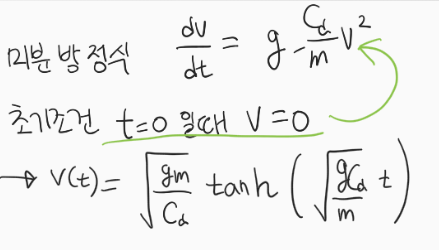 미분 방정식 dv/dt = g - C_d/m v²
초기조건 t=0 일때 V=0
→ V(t) = √(gm/C_d) tanh(√(gC_d/m) t)